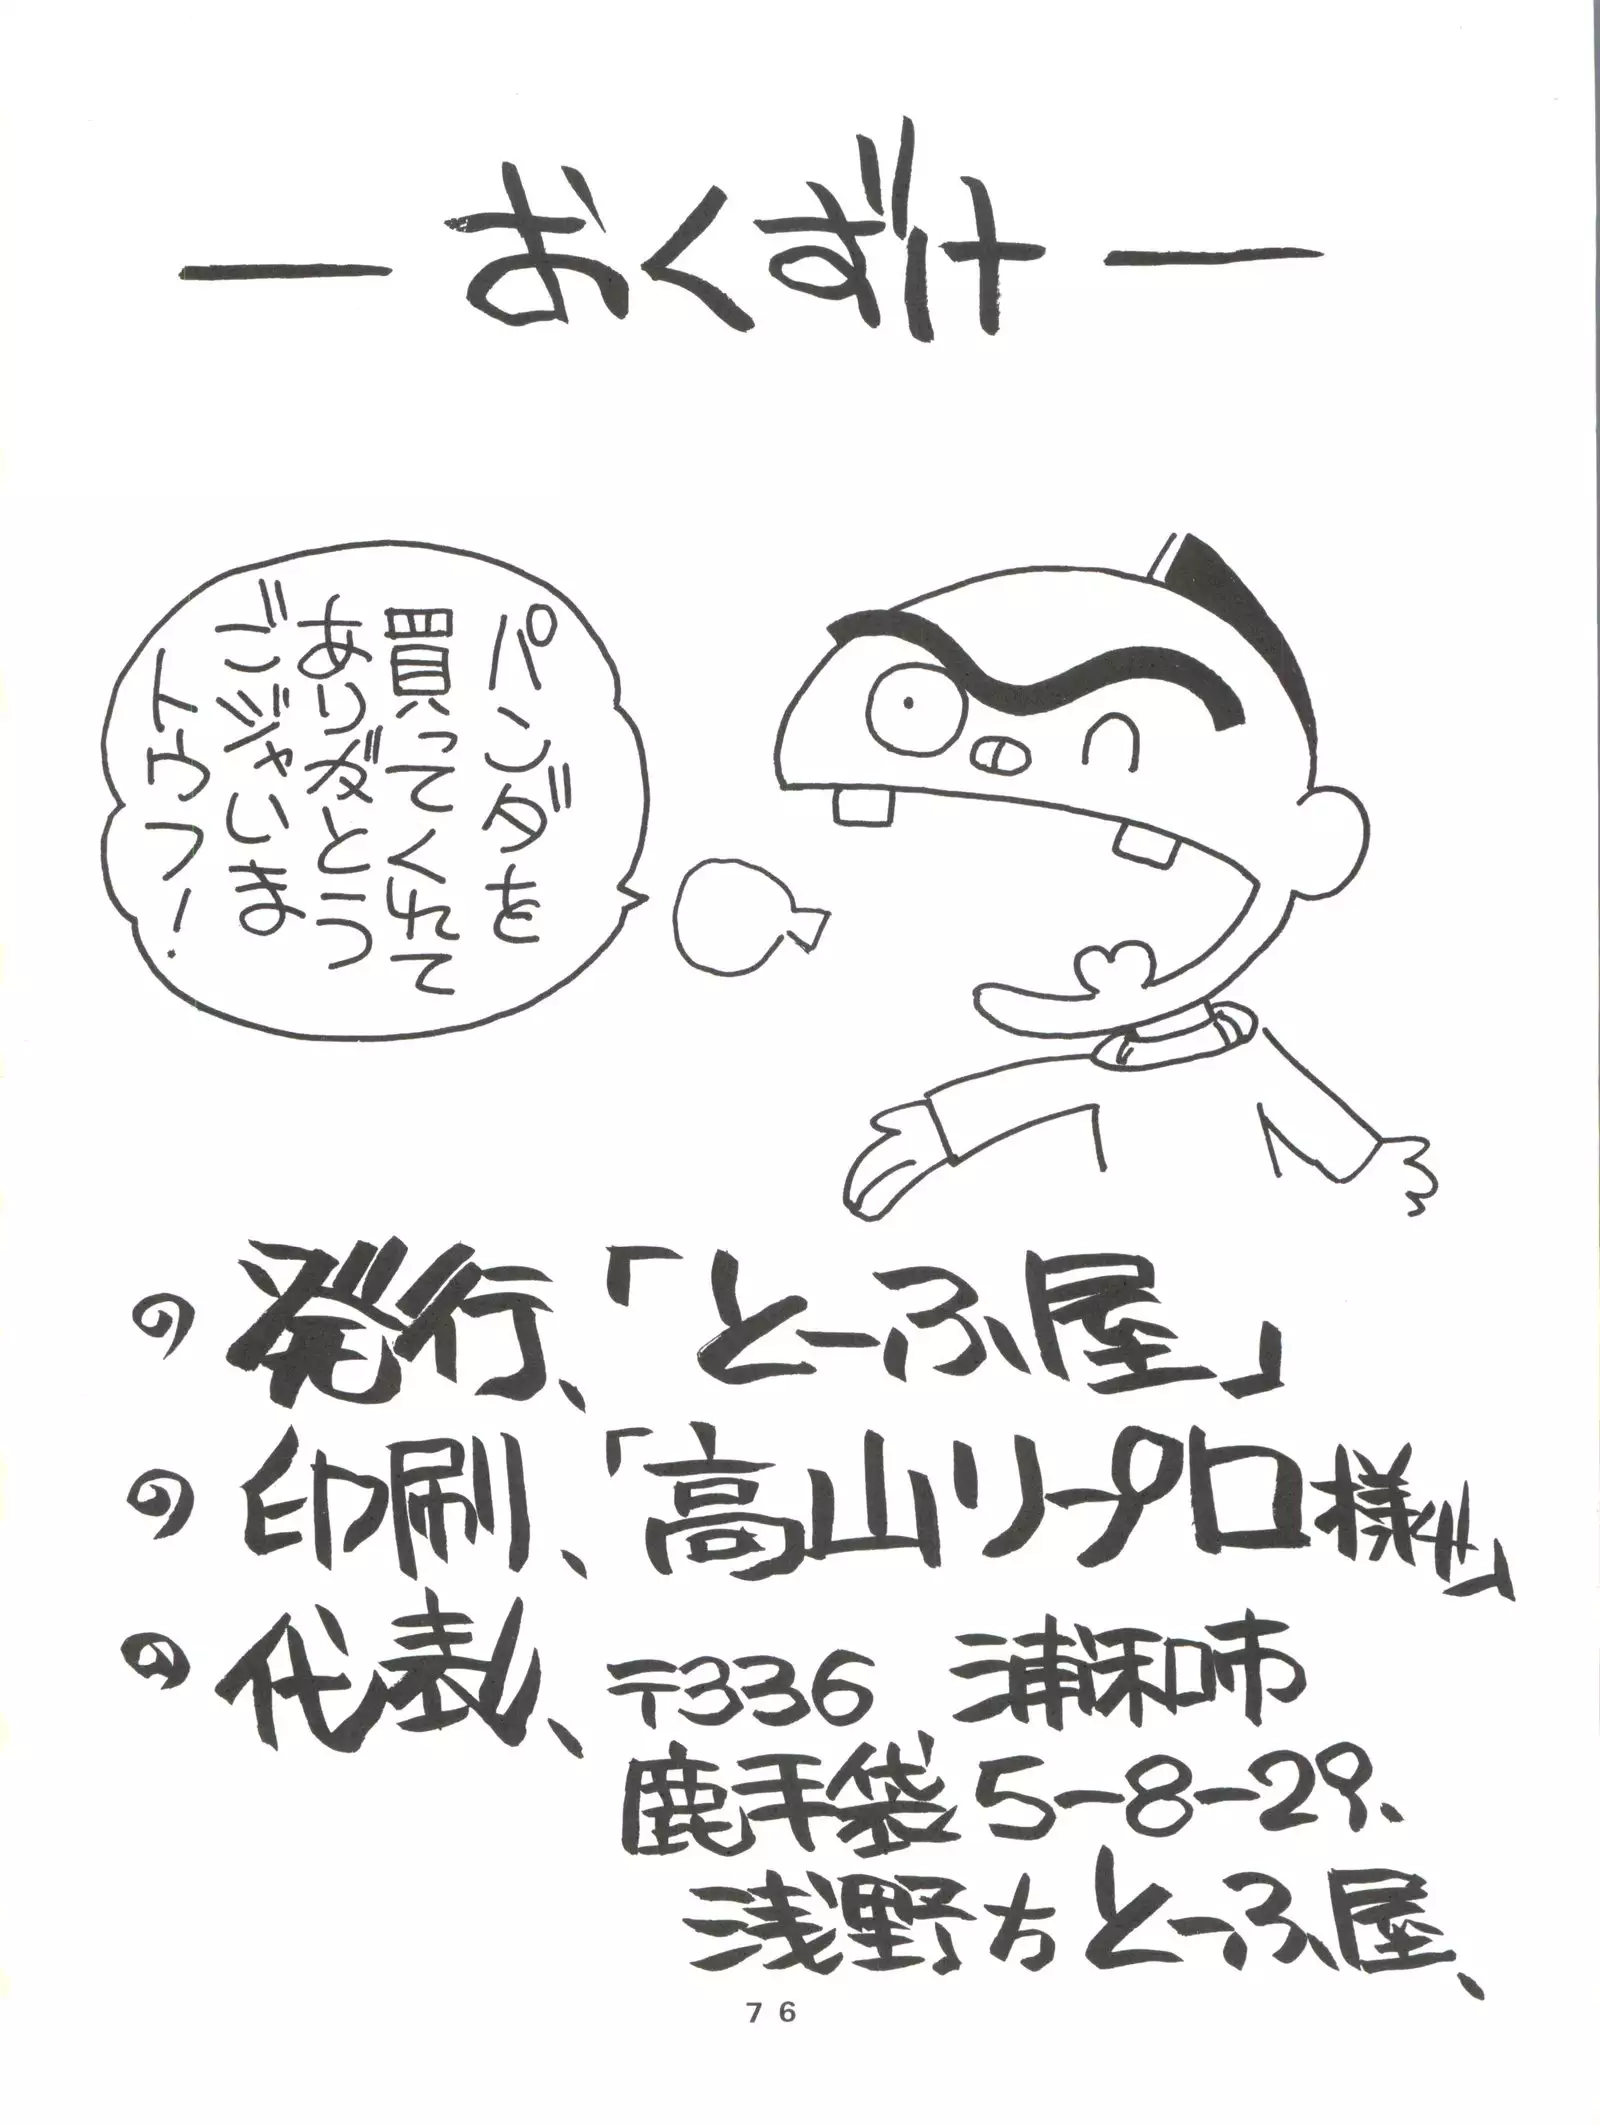 ― おくずけ ―
パンダを
買ってくれて
ありがとう
ゴジャいま
トウフ!
発行、「とーふ屋」
印刷、「高山リープロ様」
代表、〒336 浦和市
鹿手袋5-8-29、
浅野方とーふ屋、
76